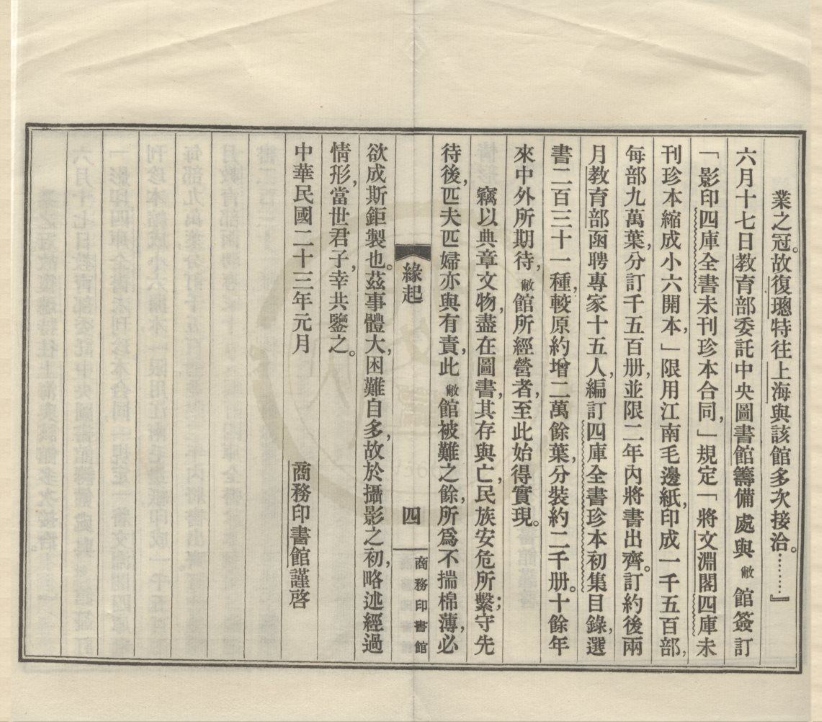 業之冠。故復璁特往上海與該館多次接洽。……』
六月十七日教育部委託中央圖書館籌備處與敝館簽訂
「影印四庫全書未刊珍本合同」規定「將文淵閣四庫未
刊珍本縮成小六開本」限用江南毛邊紙，印成一千五百部，
每部九萬葉，分訂千五百册，並限二年內將書出齊。訂約後兩
月教育部函聘專家十五人，編訂四庫全書珍本初集目錄，選
書二百三十一種，較原約增二萬餘葉，分裝約二千册。十餘年
來中外所期待，敝館所經營者，至此始得實現。
竊以典章文物，盡在圖書，其存與亡，民族安危所繫；守先
待後，匹夫匹婦亦與有責，此敝館被難之餘，所爲不揣棉薄，必
緣起
四
商務印書館
欲成斯鉅製也。茲事體大，困難自多，故於攝影之初，略述經過
情形，當世君子，幸共鑒之。
中華民國二十三年元月
商務印書館謹啓